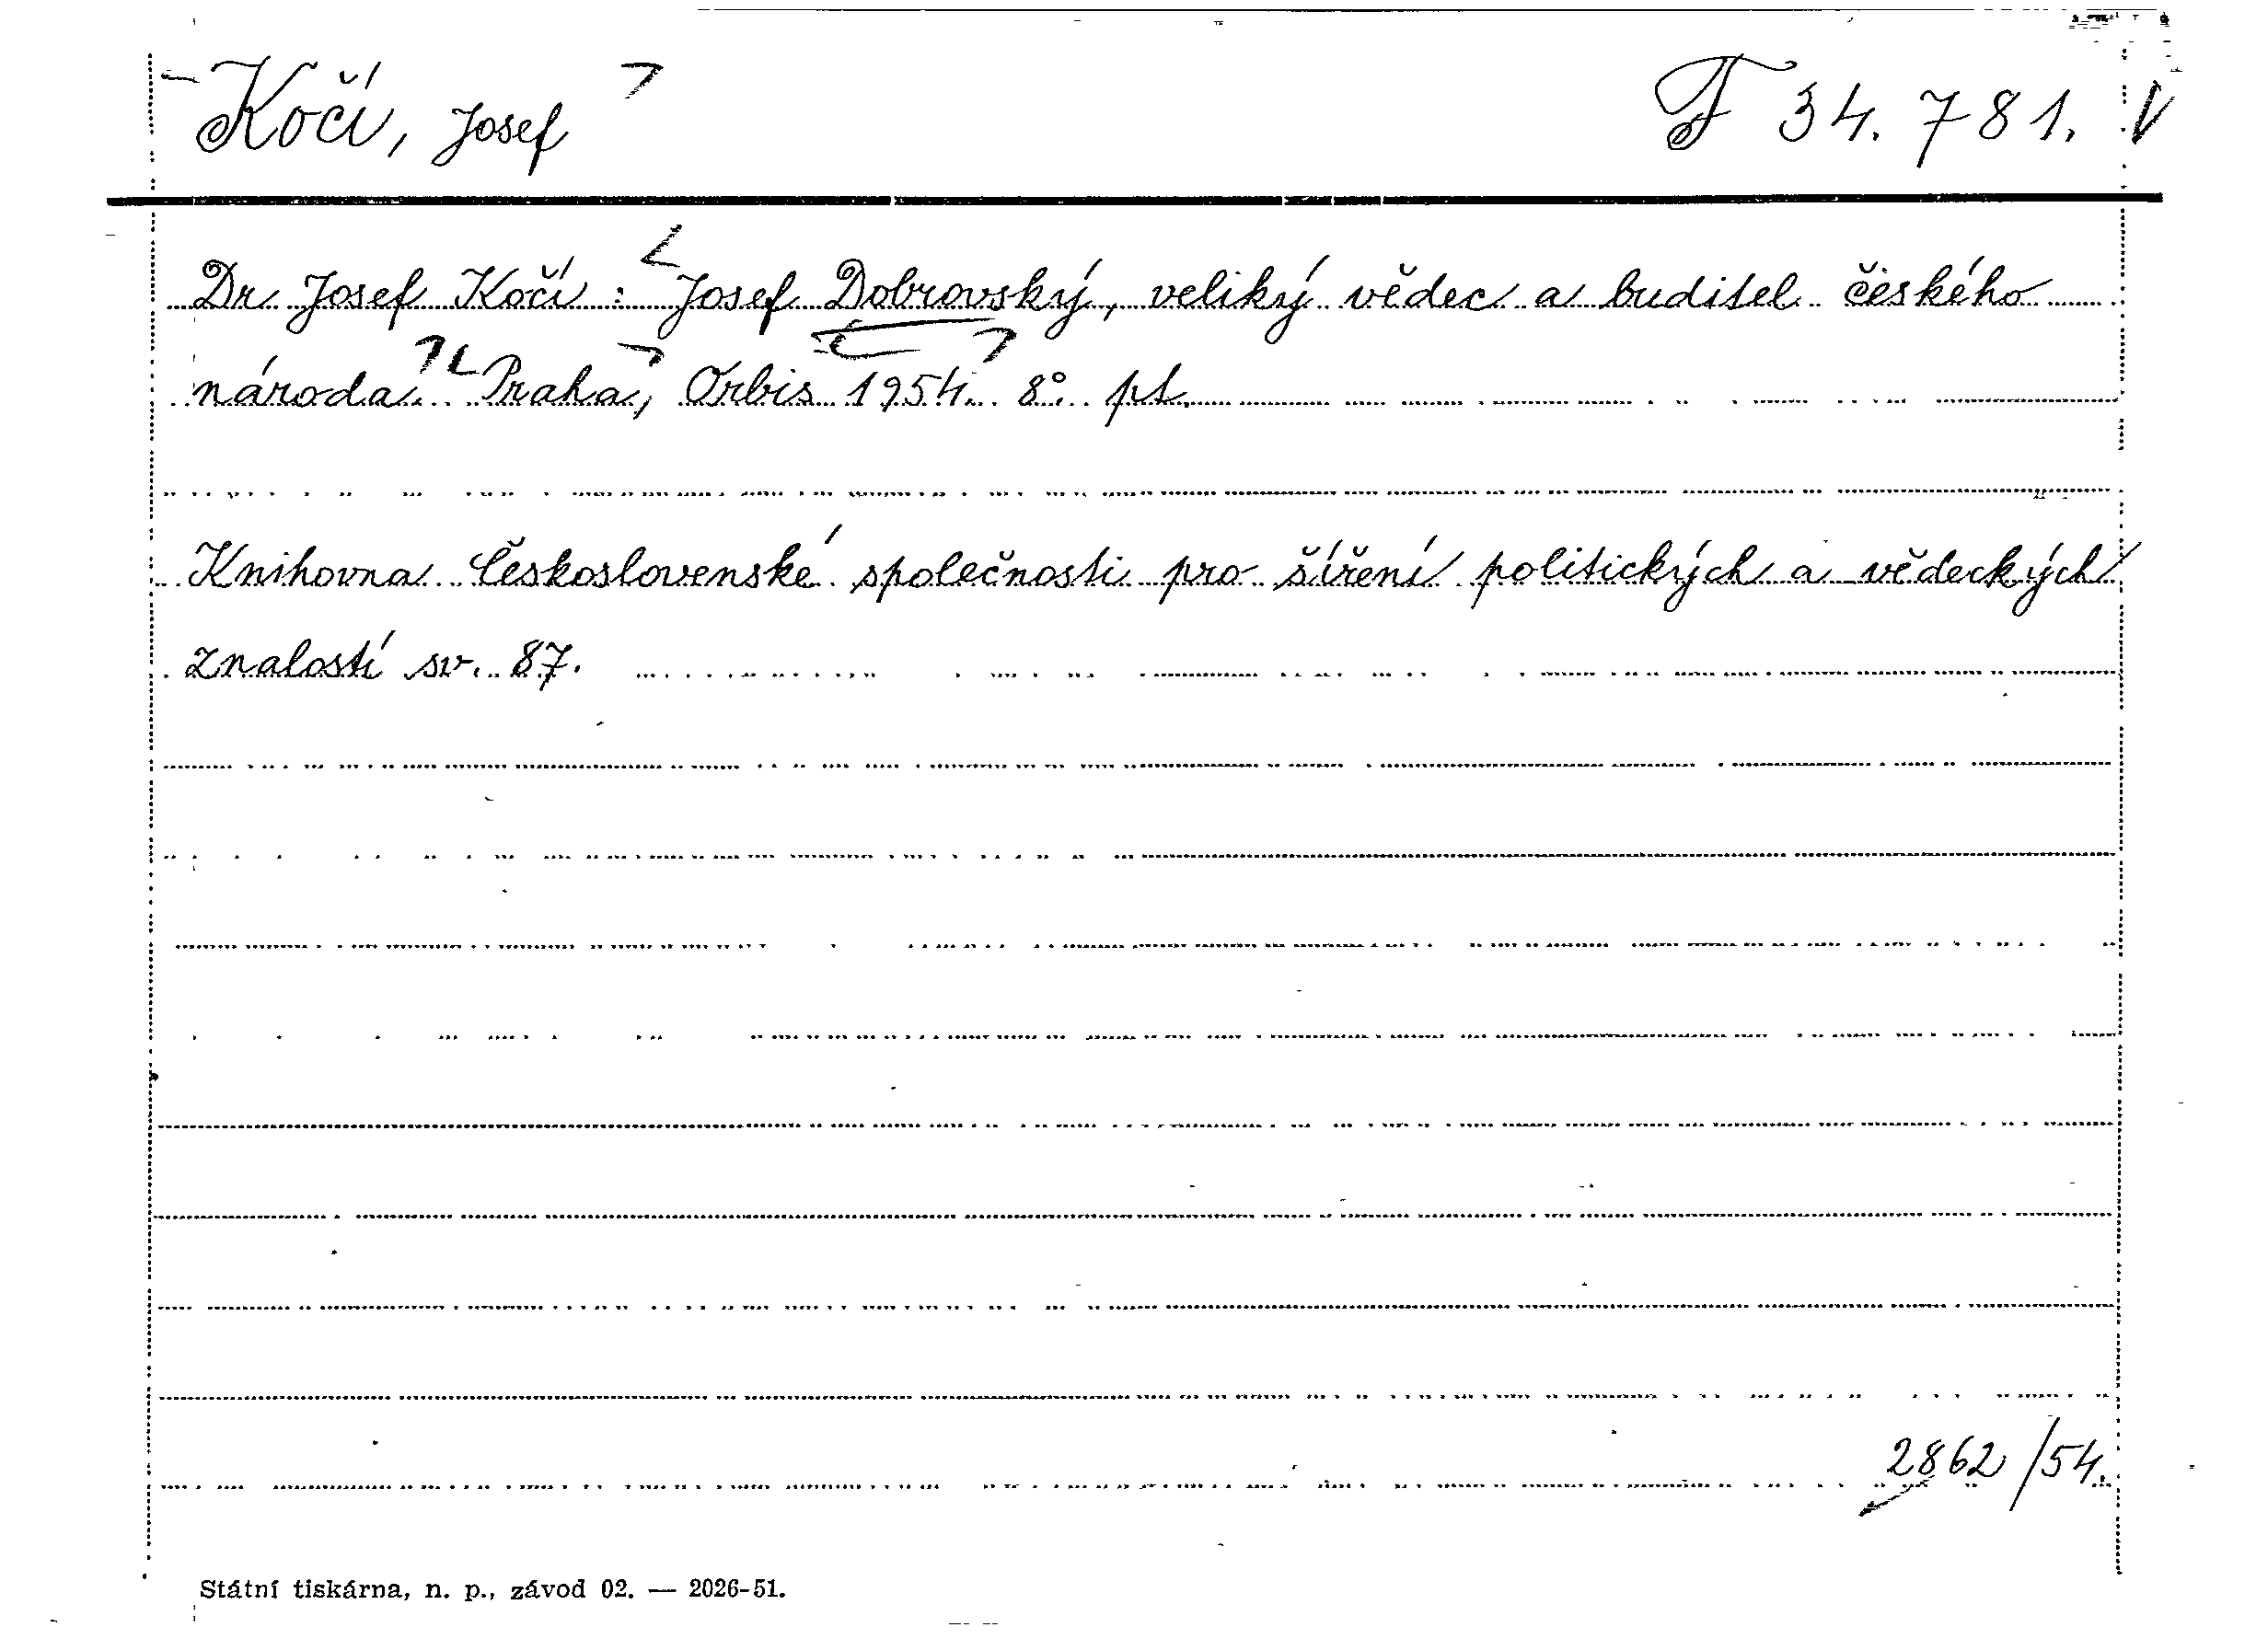 Kočí, Josef
F 34.781.
Dr Josef Kočí : Josef Dobrovský, veliký vědec a buditel českého
národa. Praha, Orbis 1954. 8°. pt.
Knihovna Československé společnosti pro šíření politických a vědeckých
znalostí sv. 87.
2862/54.
Státní tiskárna, n. p., závod 02. — 2026-51.